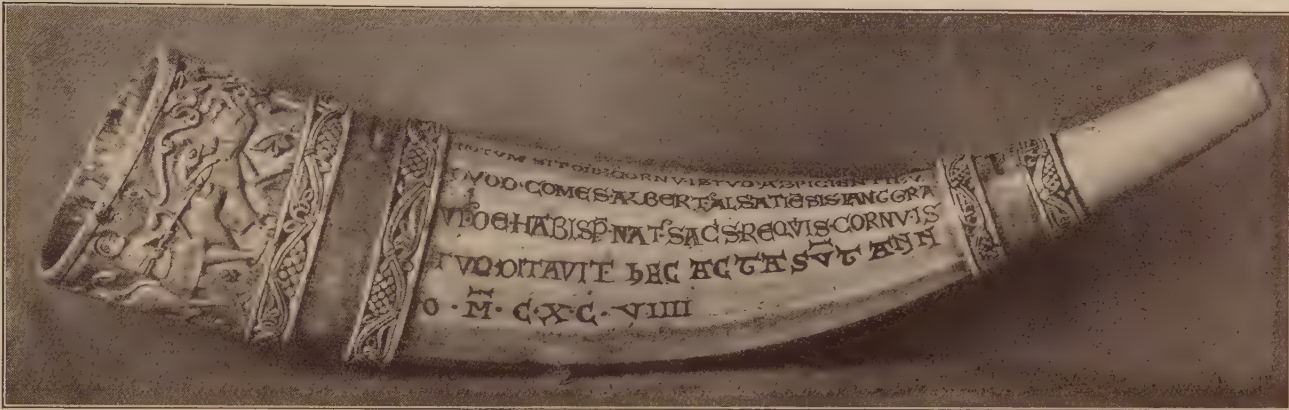 SIT CORNV ISTVD ASPICIENTIBV
QVOD·COMES ALBERT' ALSATIESIS LANGGRA
DE HABISP̄ NAT' SAC'S REQVIS·CORNV IS
TVD·DITAVIT hEC ACTA SV̄T ANN
O · M̄ · C·X·C· VIIII